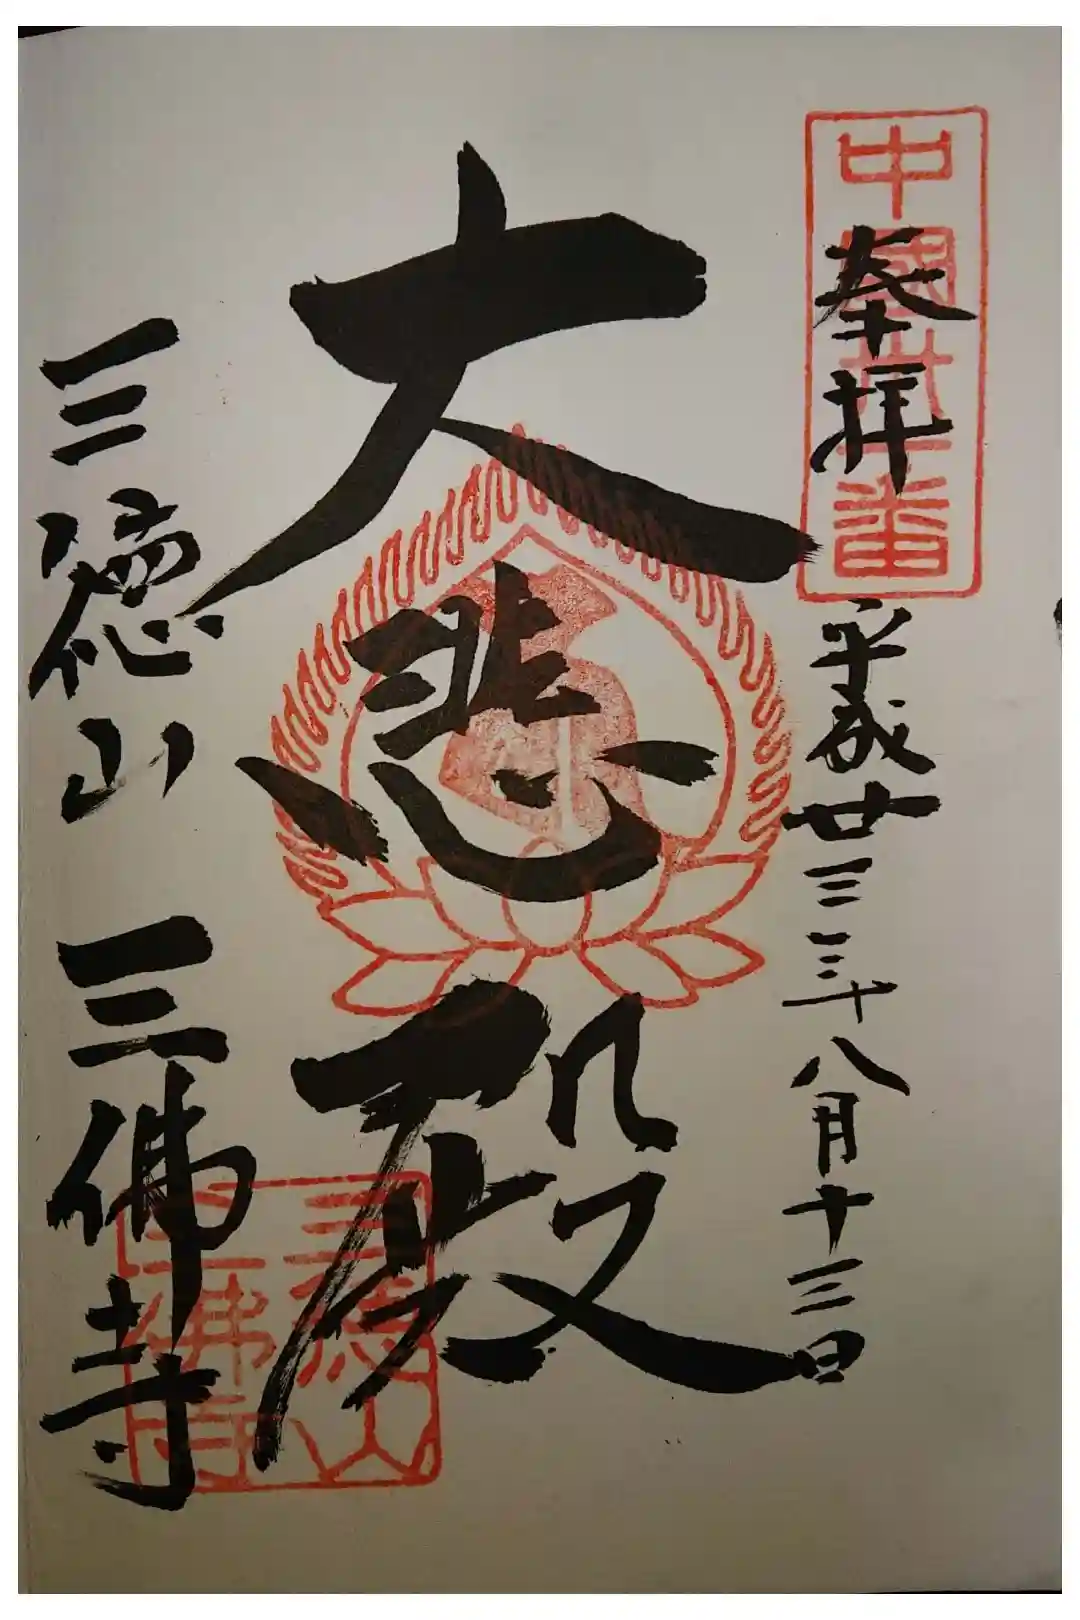 中國卅一番
奉拝
平成廿三年八月十三日
大悲殿
三徳山 三佛寺
三徳山
三佛寺